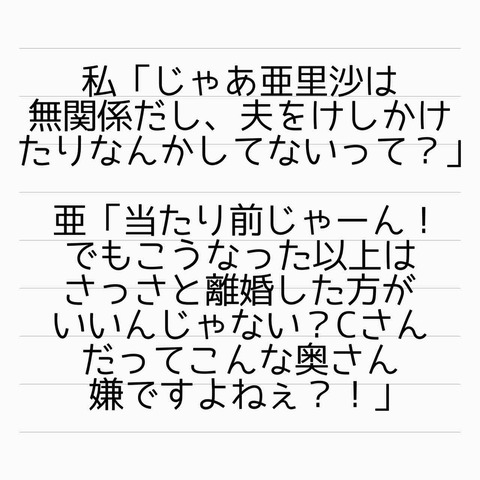 私「じゃあ亜里沙は
無関係だし、夫をけしかけ
たりなんかしてないって？」
亜「当たり前じゃーん！
でもこうなった以上は
さっさと離婚した方が
いいんじゃない？Cさん
だってこんな奥さん
嫌ですよねぇ？！」